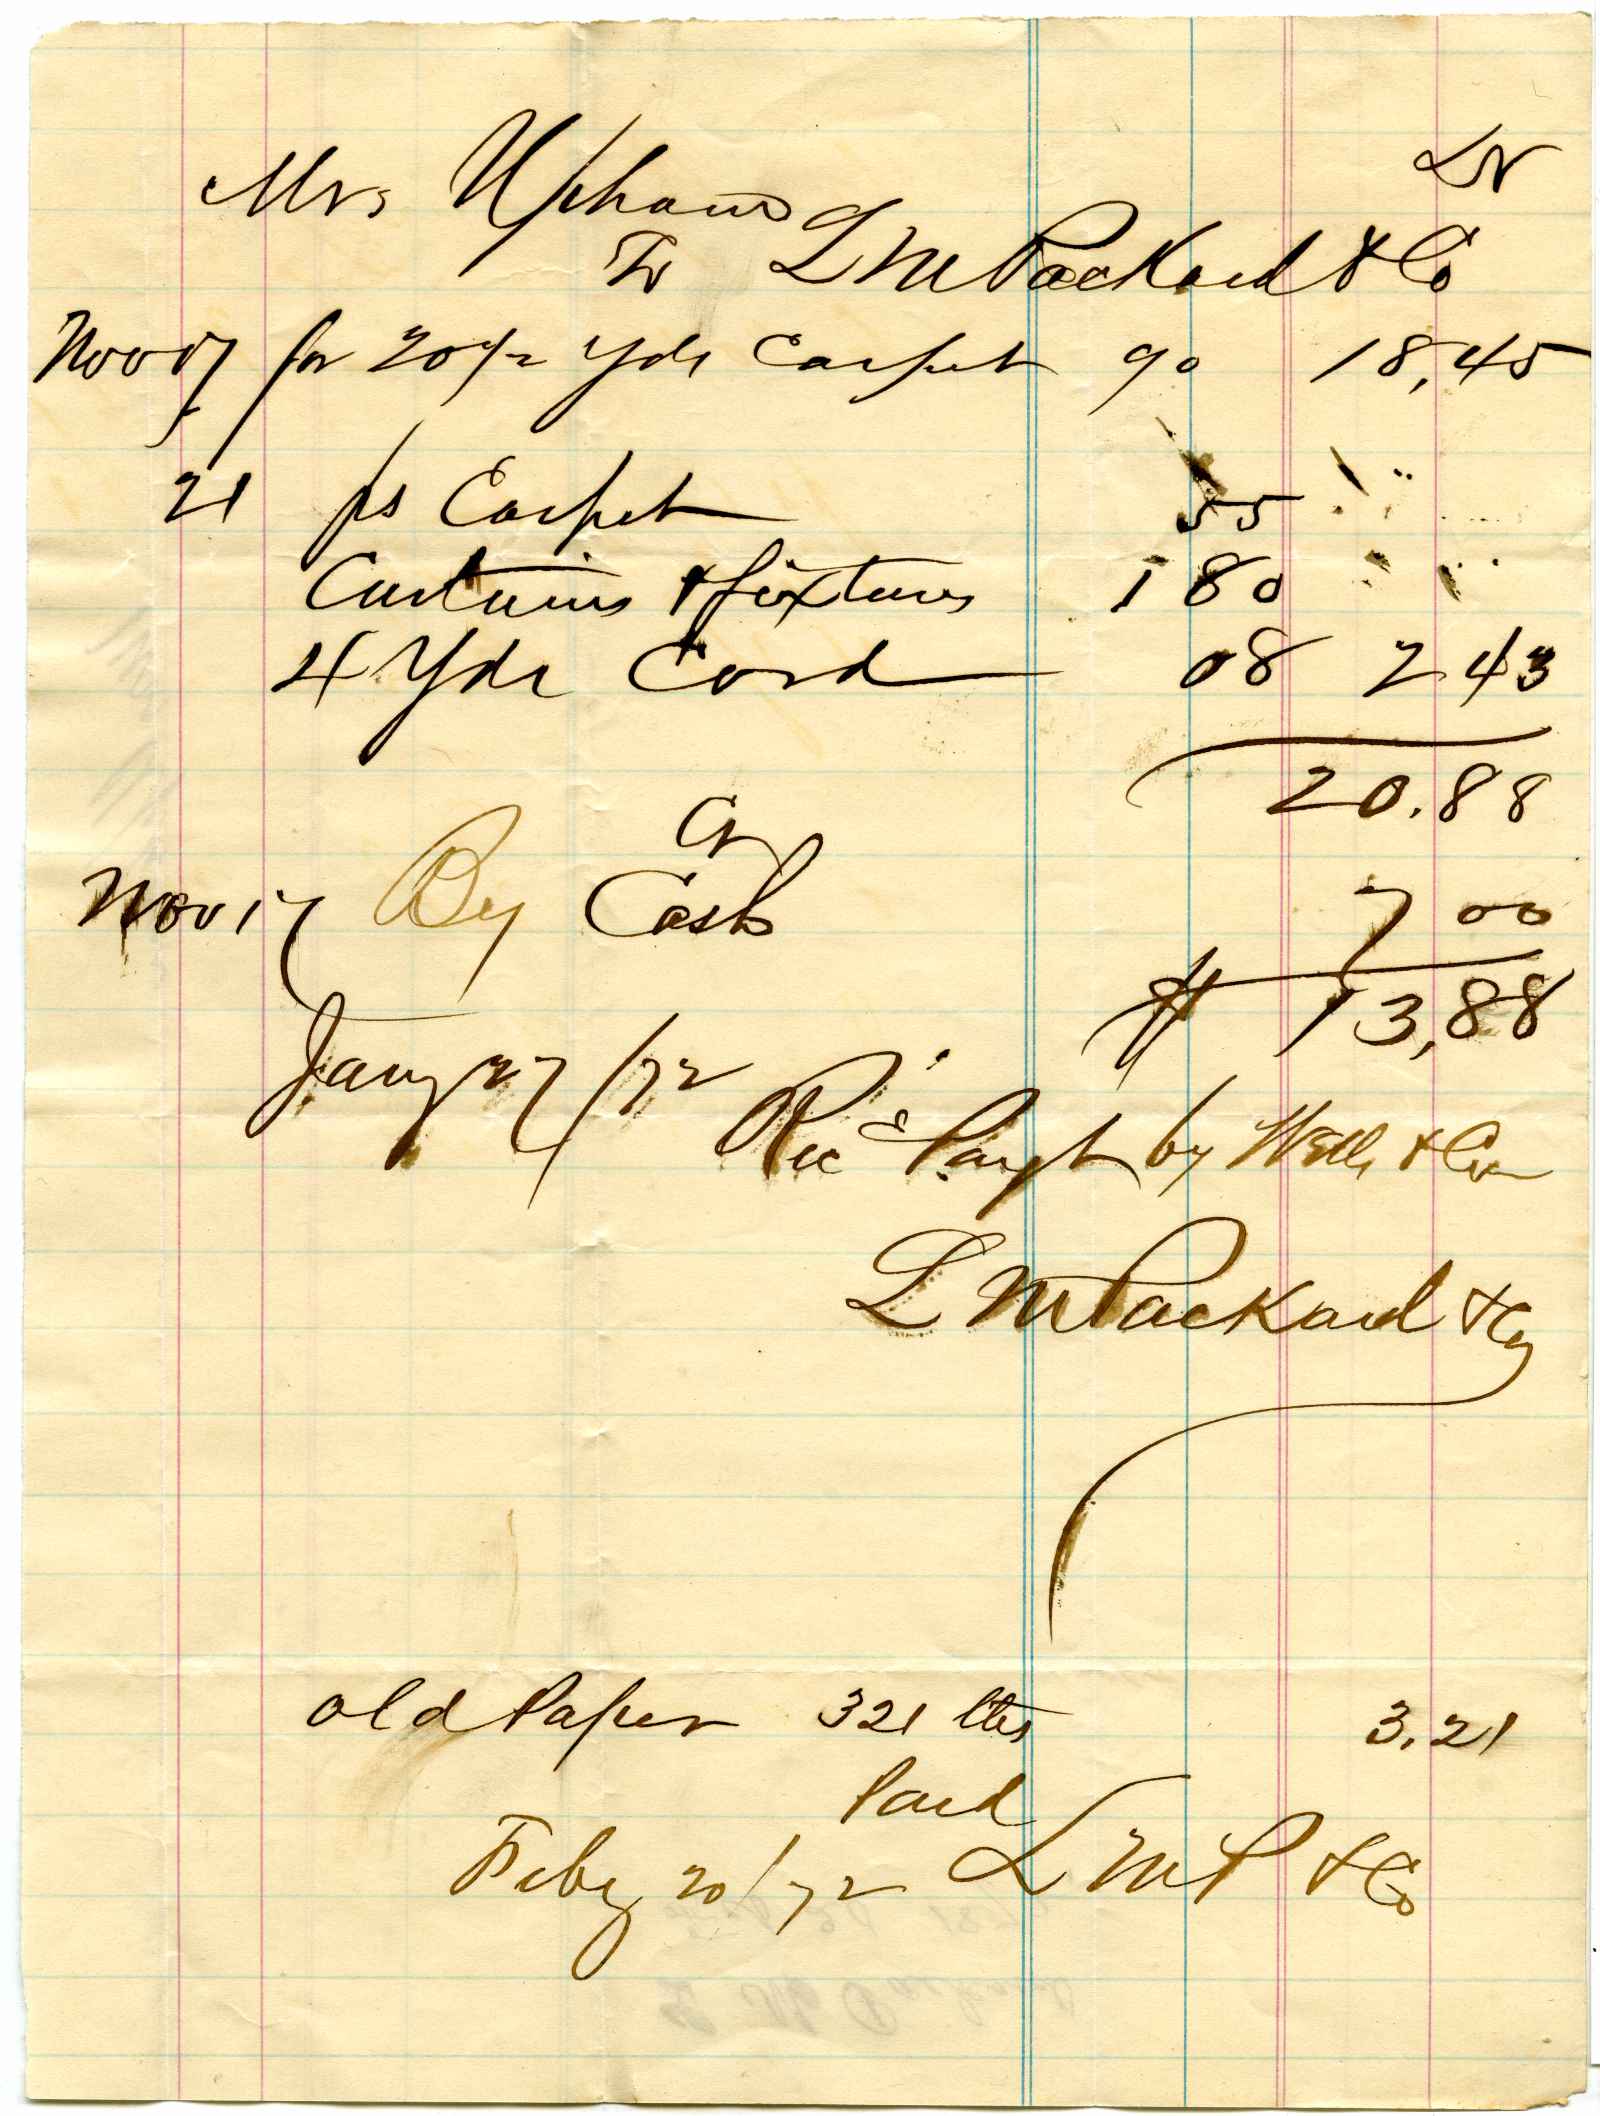 Mrs Upham Dr
To L M Packard & Co
Nov 17 for 20 1/2 Yds Carpet 90 18,45
21 ps Carpet 55
Curtains & fixtures 1 80
4 Yds Cord 08 2 43
20.88
Cr
Nov 17 By Cash 7 00
$ 13,88
Jany 27/72 Recd Payt by Wells & Co
L M Packard & Co
old Paper 321 lbs 3.21
Paid
Feby 20/72 L M P & Co